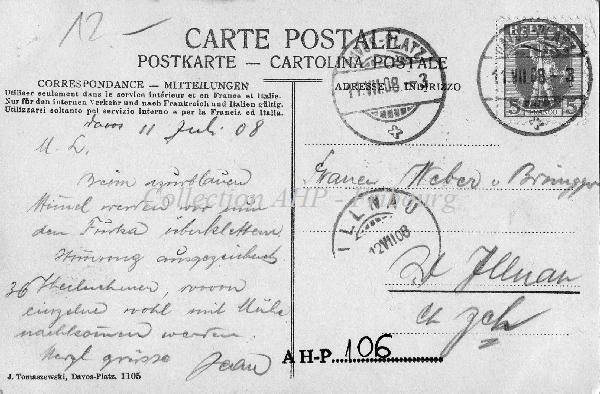 12 –
CARTE POSTALE
POSTKARTE – CARTOLINA POSTALE
CORRESPONDANCE – MITTEILUNGEN
Utiliser seulement dans le service intérieur et en France et Italie.
Nur für den internen Verkehr und nach Frankreich und Italien gültig.
Utilizzarsi soltanto pel servizio interno e per la Francia ed Italia.
ADRESSE – INDIRIZZO
DAVOS-PLATZ
11.VII.08 – 3
HELVETIA
5 5
11.VII.08 – 3
Davos 11 Juli 08
M. L.
Beim azurblauen
Himmel werden wir nun
den Furka überklettern
Stimmung ausgezeichnet
36 Theilnehmer, wovon
einzelne wohl mit Mühe
nachkommen werden.
Herzl grüsse
Jean
Frauen Weber v
ILLNAU
12VII08
Illnau
Zch
Collection AHP - Fribourg
AH-P...106
J. Tomaszewski, Davos-Platz. 1105